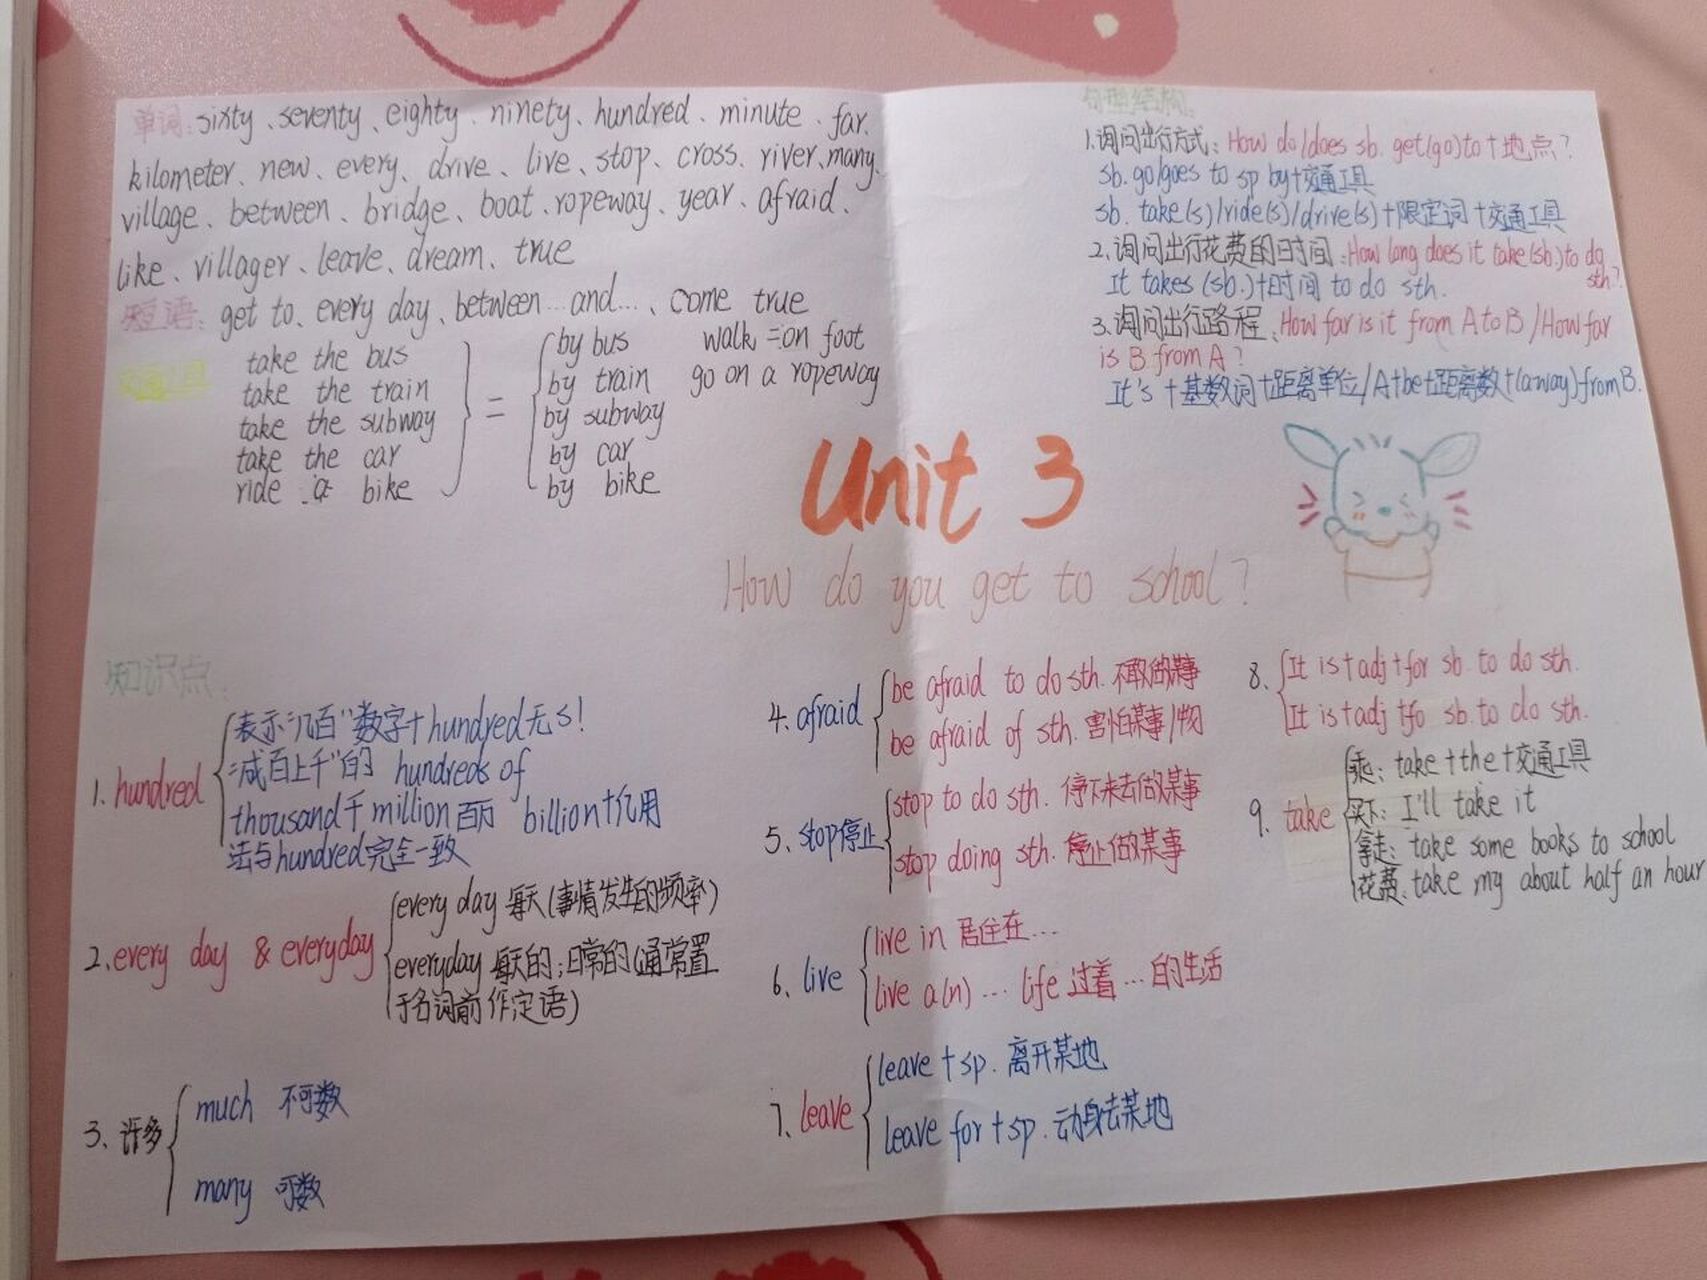 单词: sixty、seventy、eighty、ninety、hundred、minute、far、
kilometer、new、every、drive、live、stop、cross、river、many、
village、between、bridge、boat、ropeway、year、afraid、
like、villager、leave、dream、true
短语: get to、every day、between...and...、come true
交通工具
take the bus
take the train
take the subway
take the car
ride a bike
=
by bus
by train
by subway
by car
by bike
walk = on foot
go on a ropeway
句型结构:
1.询问出行方式: How do/does sb. get(go) to+地点?
sb. go/goes to sp by+交通工具
sb. take(s)/ride(s)/drive(s)+限定词+交通工具
2.询问出行花费的时间: How long does it take (sb.) to do
sth?
It takes (sb.)+时间 to do sth.
3.询问出行路程: How far is it from A to B / How far
is B from A?
It's+基数词+距离单位/A+be+距离数+(away) from B.
Unit 3
How do you get to school?
知识点:
1. hundred
表示"几百"数字+hundred无s!
"成百上千"的 hundreds of
thousand千 million百万 billion十亿用
法与hundred完全一致
2. every day & everyday
every day 每天(事情发生的频率)
everyday 每天的;日常的(通常置
于名词前作定语)
3、许多
much 不可数
many 可数
4. afraid
be afraid to do sth. 不敢做某事
be afraid of sth. 害怕某事/物
5、stop停止
stop to do sth. 停下来去做某事
stop doing sth. 停止做某事
6、live
live in 居住在...
live a(n) ... life 过着...的生活
7、leave
leave + sp. 离开某地
leave for + sp. 动身去某地
8.
It is+adj+for sb. to do sth.
It is+adj+fo sb. to do sth.
9. take
乘: take+the+交通工具
买下: I'll take it
拿走: take some books to school
花费: take my about half an hour